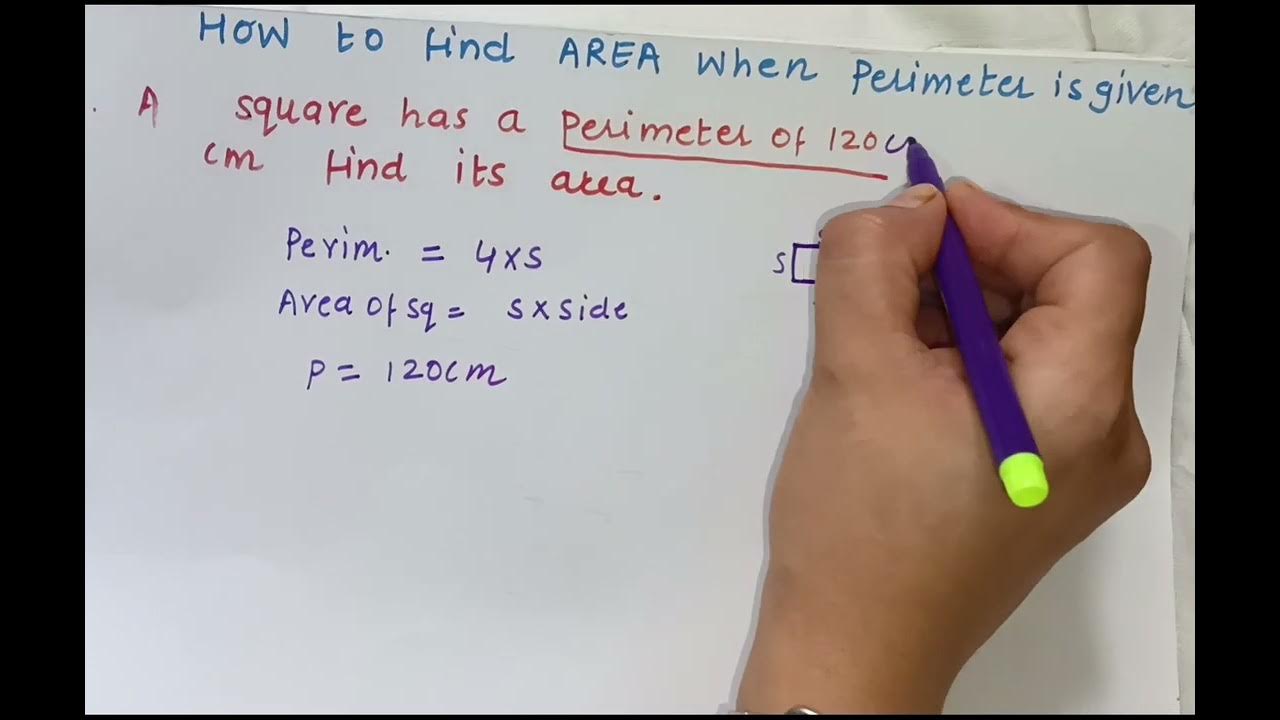 HOW to find AREA when Perimeter is given
A square has a perimeter of 120 c
cm find its area.
Perim. = 4 x s
S
Area of sq = s x side
P = 120cm